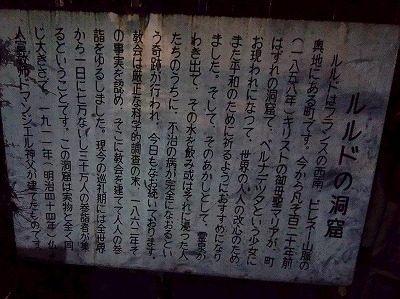 ルルドの洞窟
ルルドはフランスの西南、ピレネー山脈の
奥地にある町です。今から凡そ百二十年前
(一八五八年)キリストの御母聖マリアが、町
はずれの洞窟で、ベルナデッタという少女に
お現われになって、世界の人々の改心のため
また平和のために祈るようにおすすめになり
ました。そして、そのあかしとして、霊泉が
わき出て、その水を飲み或はそれに浸った人
たちのうちに、不治の病が完全になおるとい
う奇跡が行われ、今日もなお続いております。
教会は厳正な科学的調査の末、一八六二年そ
の事実を認め、そこに教会を建てて人々の参
詣をゆるしました。現今の巡礼期には全世界
から一日に七万ないし三十万人の参詣者が集
るということです。この洞窟は実物と全く同
じ大きさで、一九一一年(明治四十四年)仏
人宣教師ドマンジエル神父が建てたものです。